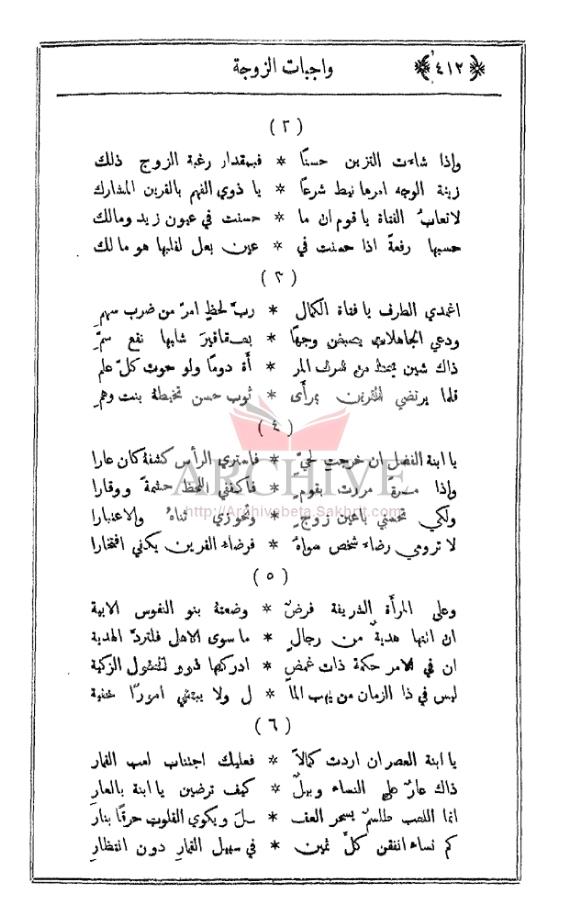 ﴿٤١٢﴾ واجبات الزوجة
(٢)
واذا شاءت التزين حسنًا * فبمقدار رغبة الزوج ذلك
زينة الوجه امرها نيط شرعًا * يا ذوي الفهم بالقرين المشارك
لا تعاب الفتاة يا قوم ان ما * حسنت في عيون زيد ومالك
حسبها رفعة اذا حسنت في * عين بعل لقلبها هو مالك
(٣)
اغمدي الطرف يا فتاة الكمال * ربّ لحظٍ امرّ من ضرب سهمِ
ودعي الجاهلات يصبغن وجهًا * بعقاقيرَ شابها نقع سمِّ
ذاك شين يحط من شرف المر * أة دومًا ولو حوت كلّ علم
قلما يرتضي القرين بمرأى * ثوب حسن تخيطه بنت وهمِ
(٤)
يا ابنة الفضل ان خرجتِ لحيّ * فاستري الرأس كشفهُ كان عارا
واذا مررتِ بقومٍ * فاكفني اللحظ حشمة ووقارا
ولكي تحسني باعين زوجٍ * وتحوزي ثناءً والاعتبارا
لا ترومي رضاء شخص سواهُ * فرضاء القرين يكفي افتخارا
(٥)
وعلى المرأة الشريفة فرضٌ * وضعتهُ بنو النفوس الابية
ان اتتها هديةٌ من رجالٍ * ما سوى الاهل فلتردّ الهدية
ان في الامر حكمة ذات غمضٍ * ادركتها ذوو العقول الزكية
ليس في ذا الزمان من يهب الما * ل ولا يبتغي امورًا خفية
(٦)
يا ابنة العصر ان اردت كمالاً * فعليك اجتناب لعب القمار
ذاك عارٌ على النساء وبيلٌ * كيف ترضين يا ابنة بالعارِ
انما اللعب طلاسمٌ يسحر العقـ * ـل ويكوي القلوب حرقًا بنارِ
كم نساء انفقن كلّ ثمين * في سبيل القمارِ دون انتظارِ
ARCHIVE
http://Archivebeta.Sakhrit.com